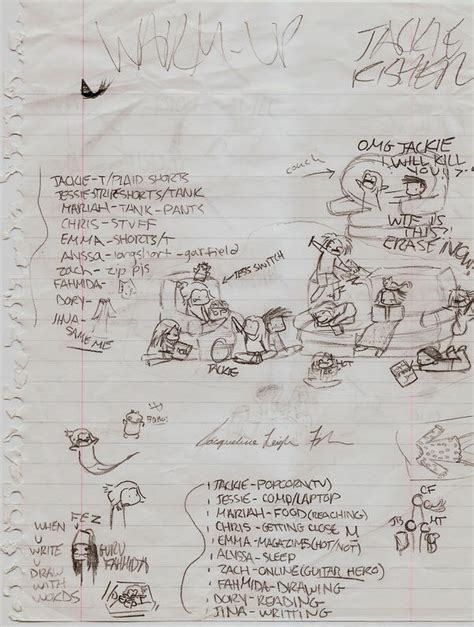 WARM-UP
JACKIE
couch
OMG JACKIE
I WILL KILL
YOU! >.<
WTF IS
THIS?!
ERASE NOW!
JACKIE-T/PLAID SHORTS
JESSIE-STRIPE SHORTS/TANK
MARIAH-TANK-PANTS
CHRIS-STUFF
EMMA-SHORTS/T
ALYSSA-longshort-garfield
ZACH-ZIP PJS
FAHMIDA-
DORY-
JINA-
SAME ME
JESS SWITCH
JACKIE
HOT
Jacqueline Leigh
CF
JB
MT
WHEN
U
WRITE
U
DRAW
WITH
WORDS
FEZ
GURU
FAHMIDA
JACKIE-POPCORN(TV)
JESSIE-COMP/LAPTOP
MARIAH-FOOD(REACHING)
CHRIS-GETTING CLOSE M
EMMA-MAGAZINES(HOT/NOT)
ALYSSA-SLEEP
ZACH-ONLINE(GUITAR HERO)
FAHMIDA-DRAWING
DORY-READING
JINA-WRITTING